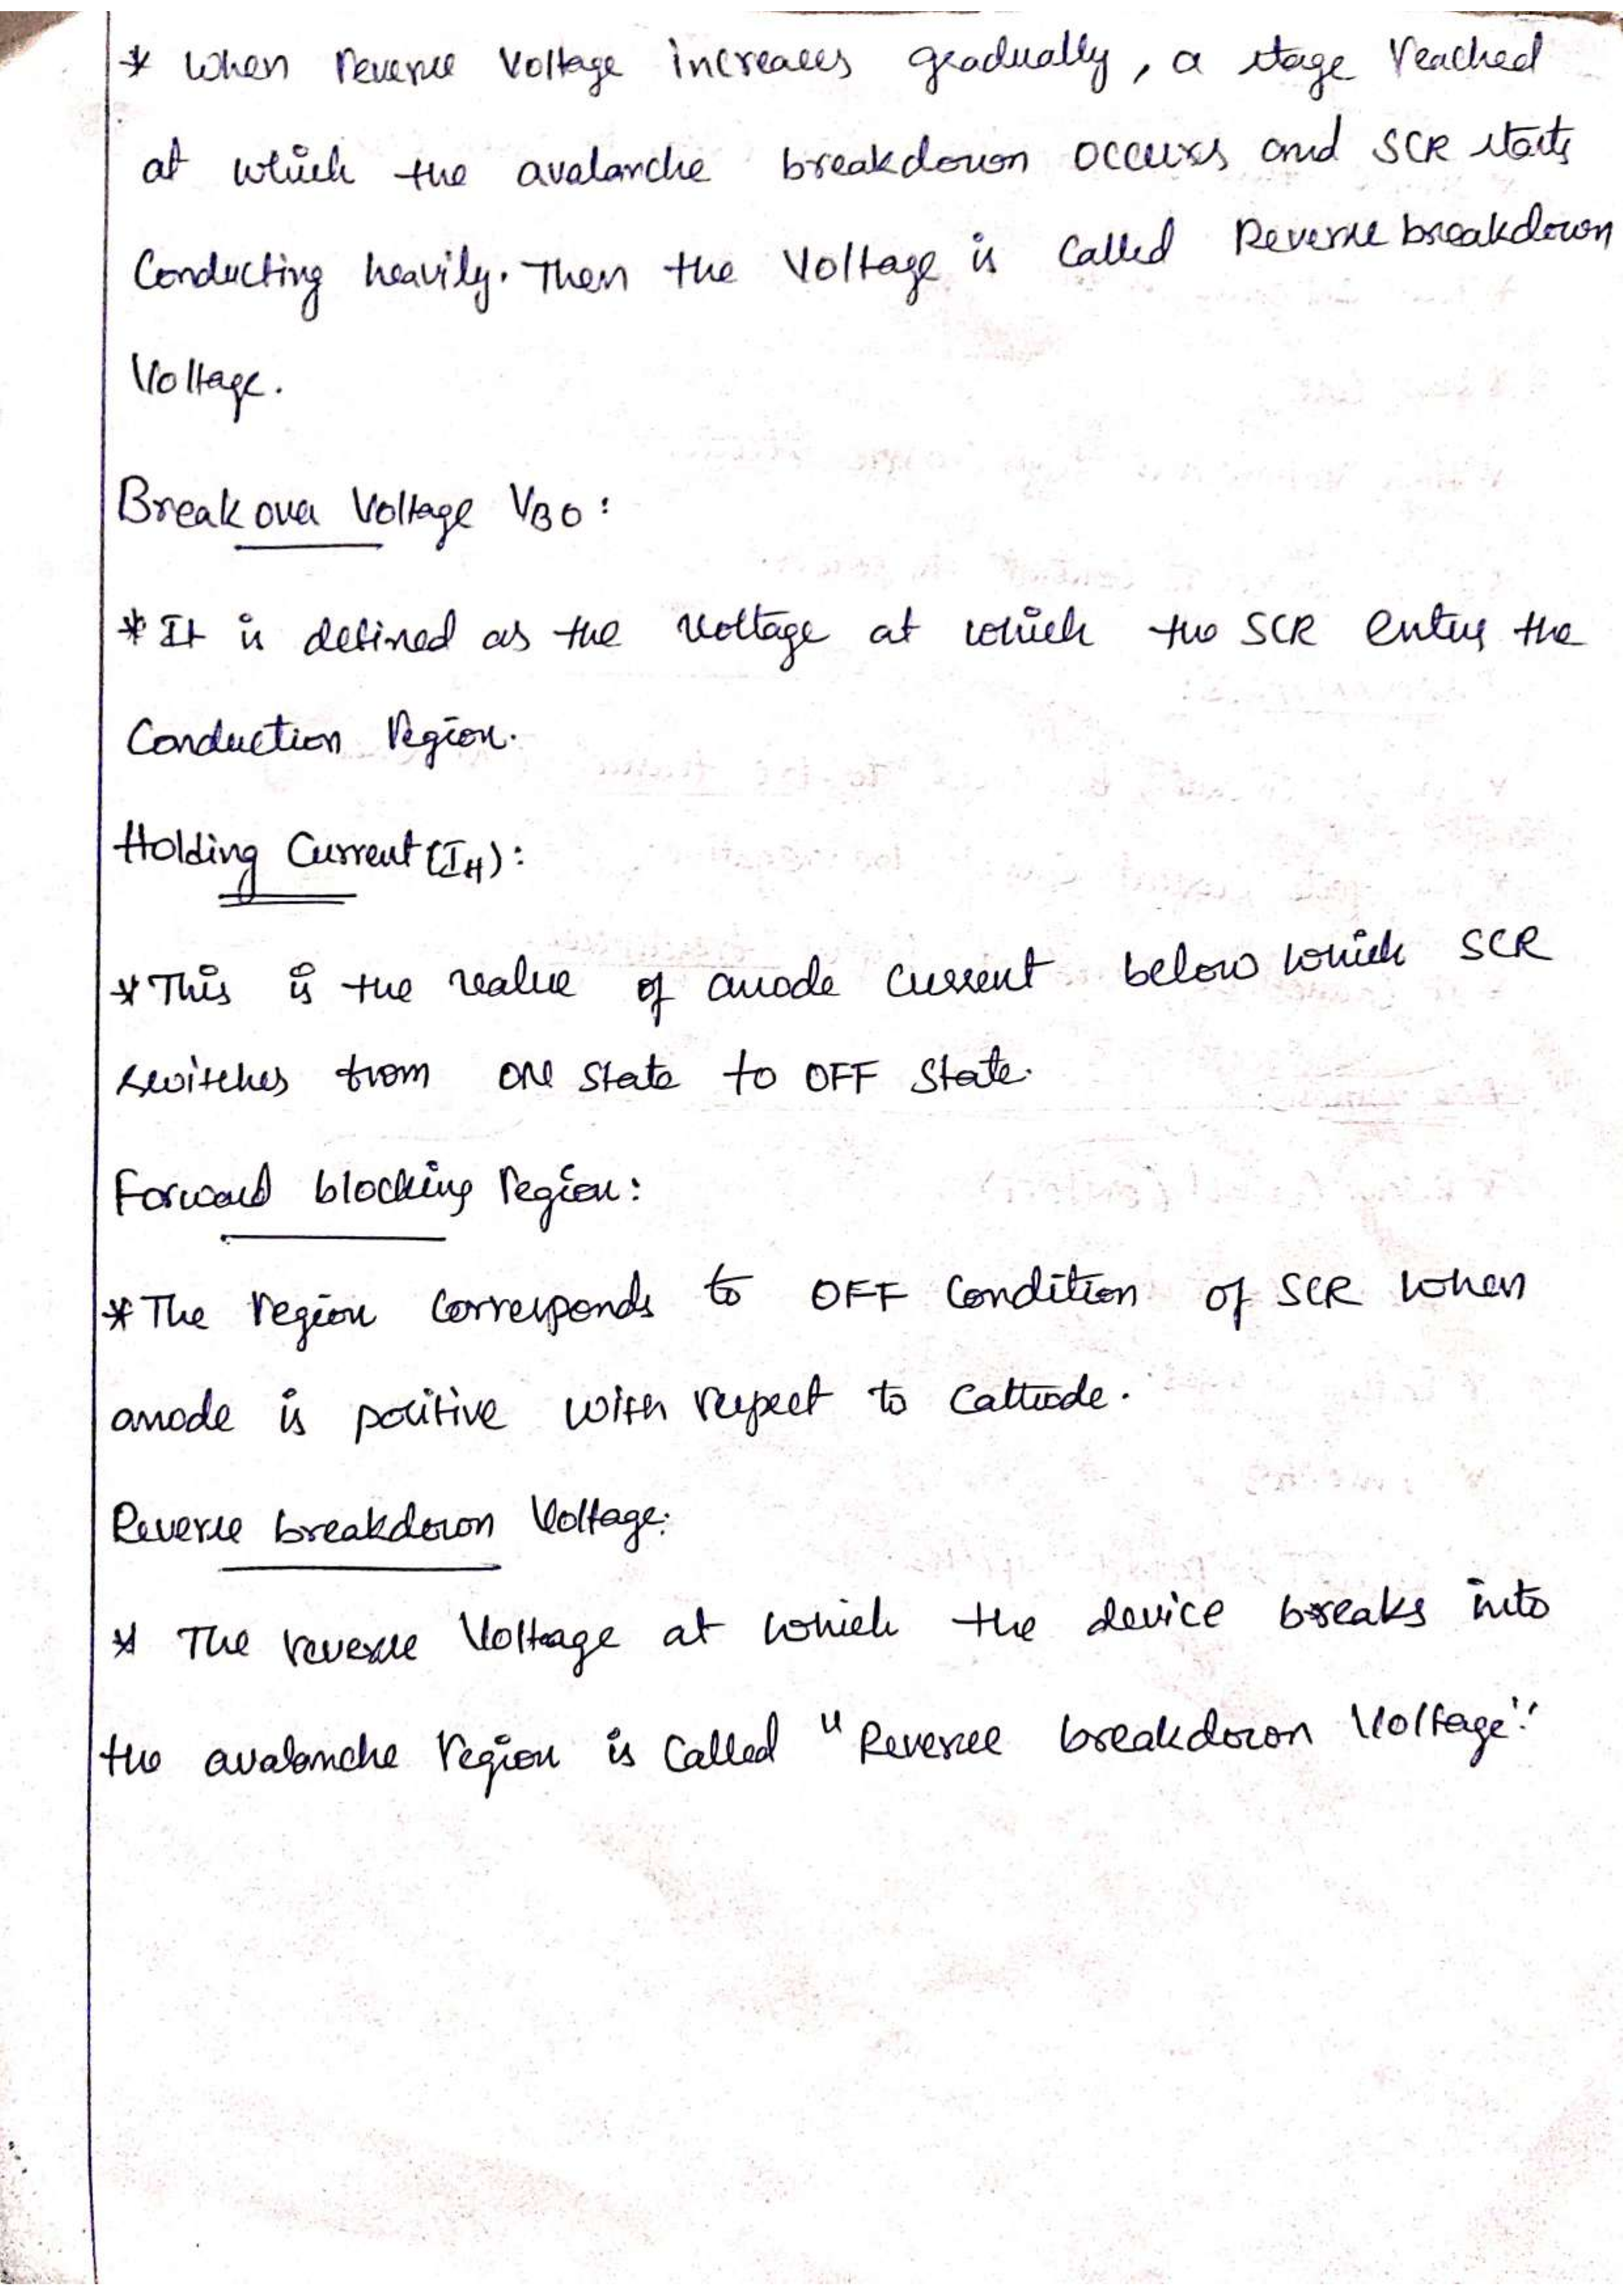 * When reverse voltage increases gradually, a stage reached
at which the avalanche breakdown occurs and SCR starts
Conducting heavily. Then the Voltage is called Reverse breakdown
Voltage.
Break over Voltage VBO :
* It is defined as the voltage at which the SCR enters the
Conduction region.
Holding Current (IH) :
* This is the value of anode current below which SCR
switches from ON state to OFF state.
Forward blocking region :
* The region corresponds to OFF Condition of SCR when
anode is positive with respect to Cathode.
Reverse breakdown Voltage:
* The reverse Voltage at which the device breaks into
the avalanche region is called "Reverse breakdown Voltage".